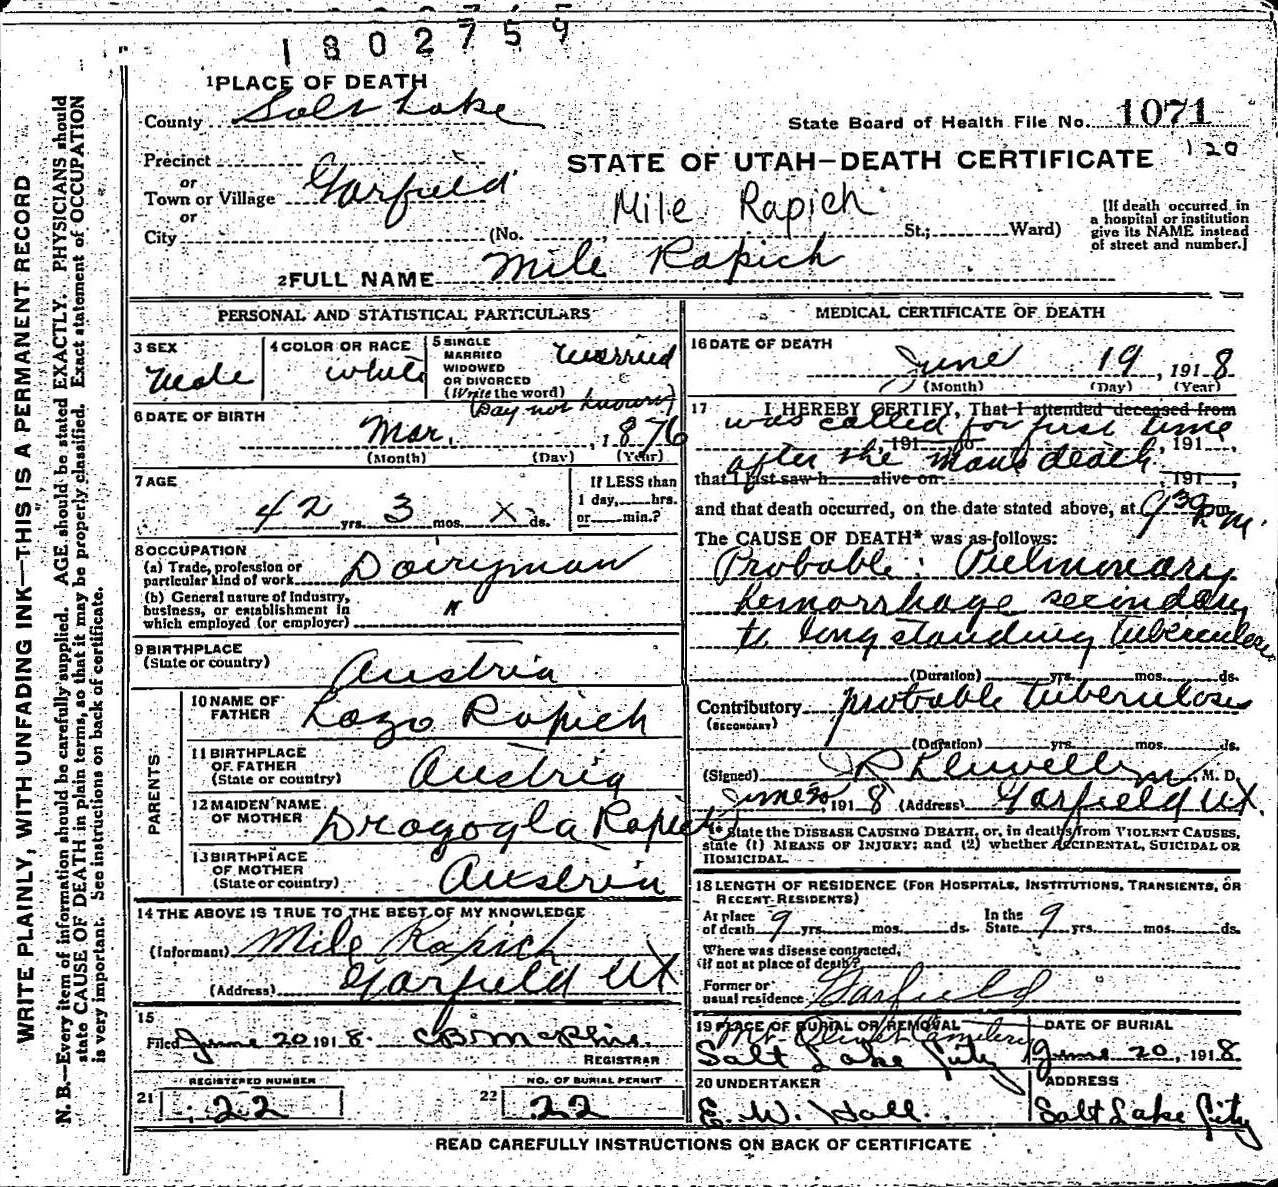 1802759
1 PLACE OF DEATH
County Salt Lake
State Board of Health File No. 1071
120
Precinct
or
Town or Village Garfield
or
City
STATE OF UTAH—DEATH CERTIFICATE
Mile Rapich
(No. St.; Ward)
[If death occurred in
a hospital or institution
give its NAME instead
of street and number.]
2 FULL NAME Mile Rapich
WRITE PLAINLY, WITH UNFADING INK—THIS IS A PERMANENT RECORD
N. B.—Every item of information should be carefully supplied. AGE should be stated EXACTLY. PHYSICIANS should
state CAUSE OF DEATH in plain terms, so that it may be properly classified. Exact statement of OCCUPATION
is very important. See instructions on back of certificate.
PERSONAL AND STATISTICAL PARTICULARS
3 SEX
Male
4 COLOR OR RACE
white
5 SINGLE
MARRIED
WIDOWED
OR DIVORCED
(Write the word)
Married
6 DATE OF BIRTH
(Day not known)
Mar. , 1876
(Month) (Day) (Year)
7 AGE
42 yrs. 3 mos. X ds.
If LESS than
1 day, hrs.
or min.?
8 OCCUPATION
(a) Trade, profession or
particular kind of work Dairyman
(b) General nature of Industry,
business, or establishment in
which employed (or employer) "
9 BIRTHPLACE
(State or country) Austria
PARENTS
10 NAME OF
FATHER Lazo Rapich
11 BIRTHPLACE
OF FATHER
(State or country) Austria
12 MAIDEN NAME
OF MOTHER Dragogla Rapich
13 BIRTHPLACE
OF MOTHER
(State or country) Austria
14 THE ABOVE IS TRUE TO THE BEST OF MY KNOWLEDGE
(Informant) Mile Rapich
(Address) Garfield UT
15
Filed June 20 1918.
REGISTRAR
21 REGISTERED NUMBER 22
22 NO. OF BURIAL PERMIT 22
MEDICAL CERTIFICATE OF DEATH
16 DATE OF DEATH
June 19, 1918
(Month) (Day) (Year)
17 I HEREBY CERTIFY, That I attended deceased from
was called for first time
, 191 to , 191 ,
after the mans death
that I last saw h alive on , 191 ,
and that death occurred, on the date stated above, at 9 30 P m.
The CAUSE OF DEATH* was as follows:
Probable Pulmonary
hemorrhage secondary
to long standing tuberculosis
(Duration) yrs. mos. ds.
Contributory probable tuberculosis
(SECONDARY)
(Duration) yrs. mos. ds.
(Signed) J R Llewellyn, M. D.
June 20 1918 (Address) Garfield UT.
* State the DISEASE CAUSING DEATH, or, in deaths from VIOLENT CAUSES,
state (1) MEANS OF INJURY; and (2) whether ACCIDENTAL, SUICIDAL OR
HOMICIDAL.
18 LENGTH OF RESIDENCE (FOR HOSPITALS, INSTITUTIONS, TRANSIENTS, OR
RECENT RESIDENTS)
At place
of death 9 yrs. mos. ds.
In the
State 9 yrs. mos. ds.
Where was disease contracted,
if not at place of death?
Former or
usual residence Garfield
19 PLACE OF BURIAL OR REMOVAL
Mt. Olivet Cemetery
Salt Lake City
DATE OF BURIAL
June 20, 1918.
20 UNDERTAKER
E. W. Hall.
ADDRESS
Salt Lake City
READ CAREFULLY INSTRUCTIONS ON BACK OF CERTIFICATE